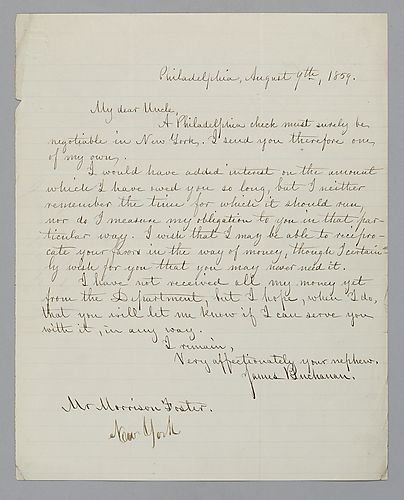 Philadelphia, August 9th, 1859.
My dear Uncle,
A Philadelphia check must surely be
negotiable in New York. I send you therefore one
of my own.
I would have added interest on the amount
which I have owed you so long, but I neither
remember the time for which it should run,
nor do I measure my obligation to you in that par-
ticular way. I wish that I may be able to recipro-
cate your favors in the way of money, though I certain-
ly wish for you that you may never need it.
I have not received all my money yet
from the Department, but I hope, when I do,
that you will let me know if I can serve you
with it, in any way.
I remain,
Very affectionately your nephew,
James Buchanan.
Mr Morrison Foster.
New York